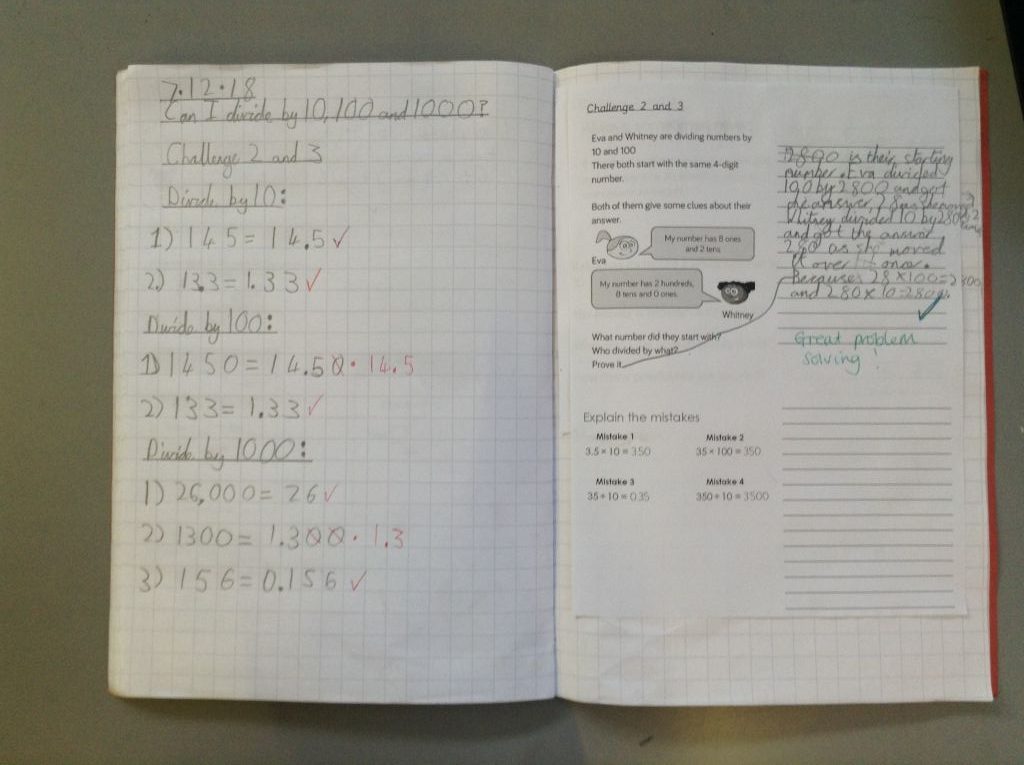 7.12.18
Can I divide by 10, 100 and 1000?
Challenge 2 and 3
Divide by 10:
1) 145 = 14.5 ✓
2.) 13.3 = 1.33 ✓
Divide by 100:
1) 1450 = 14.50 . 14.5
2) 133 = 1.33 ✓
Divide by 1000:
1) 26,000 = 26 ✓
2) 1300 = 1.300 . 1.3
3) 156 = 0.156 ✓
Challenge 2 and 3
Eva and Whitney are dividing numbers by
10 and 100
There both start with the same 4-digit
number.
Both of them give some clues about their
answer.
My number has 8 ones
and 2 tens
Eva
My number has 2 hundreds,
8 tens and 0 ones.
Whitney
What number did they start with?
Who divided by what?
Prove it.
2800 is their starting
number. Eva divided
100 by 2800 and got
the answer 28 as
Whitney divided 10 by 2800
and got the answer
280 as she moved
it over once.
Because 28 × 100 = 2800
and 280 × 10 = 2800.
✓
Great problem
solving!
Explain the mistakes
Mistake 1
3.5 × 10 = 3.50
Mistake 2
35 × 100 = 350
Mistake 3
35 ÷ 10 = 0.35
Mistake 4
350 ÷ 10 = 3500